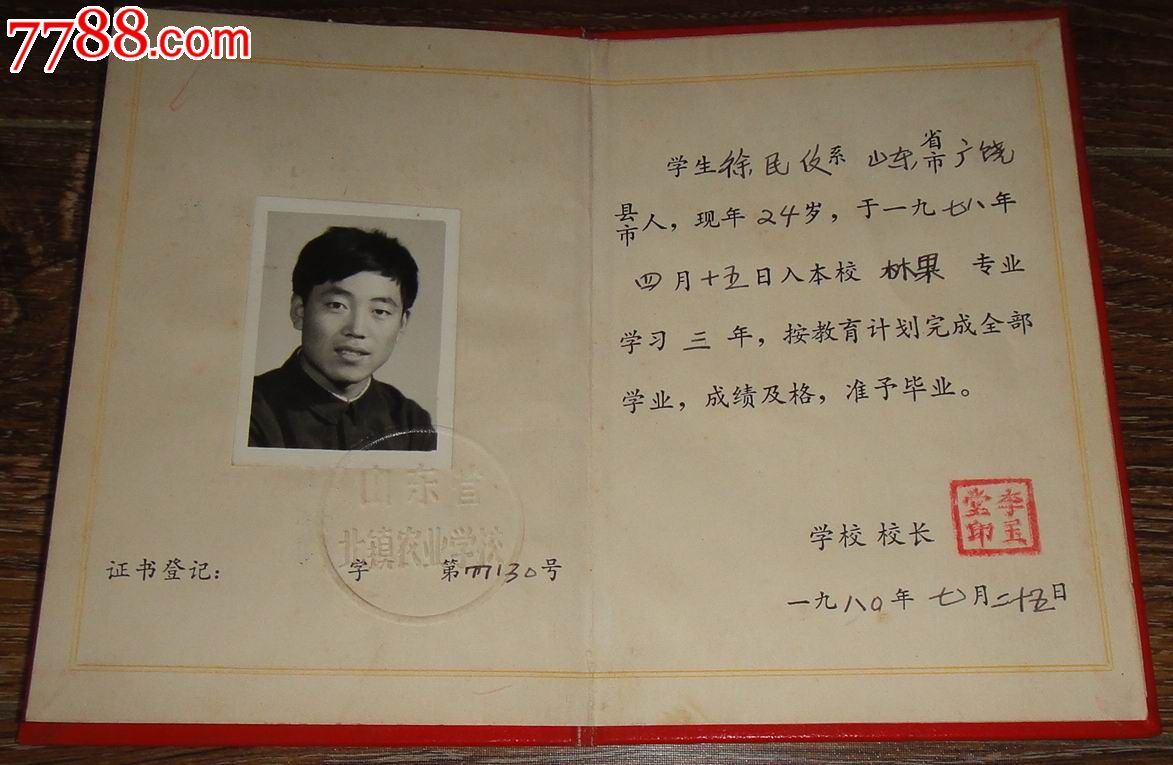 7788.com
山东省
北镇农业学校
证书登记： 字 第 130号
学生徐民仪系 山东省市广饶
县市人，现年24岁，于一九七八年
四月十五日入本校 林果 专业
学习 三 年，按教育计划完成全部
学业，成绩及格，准予毕业。
学校 校长
李玉堂印
一九八〇年 七月二十五日